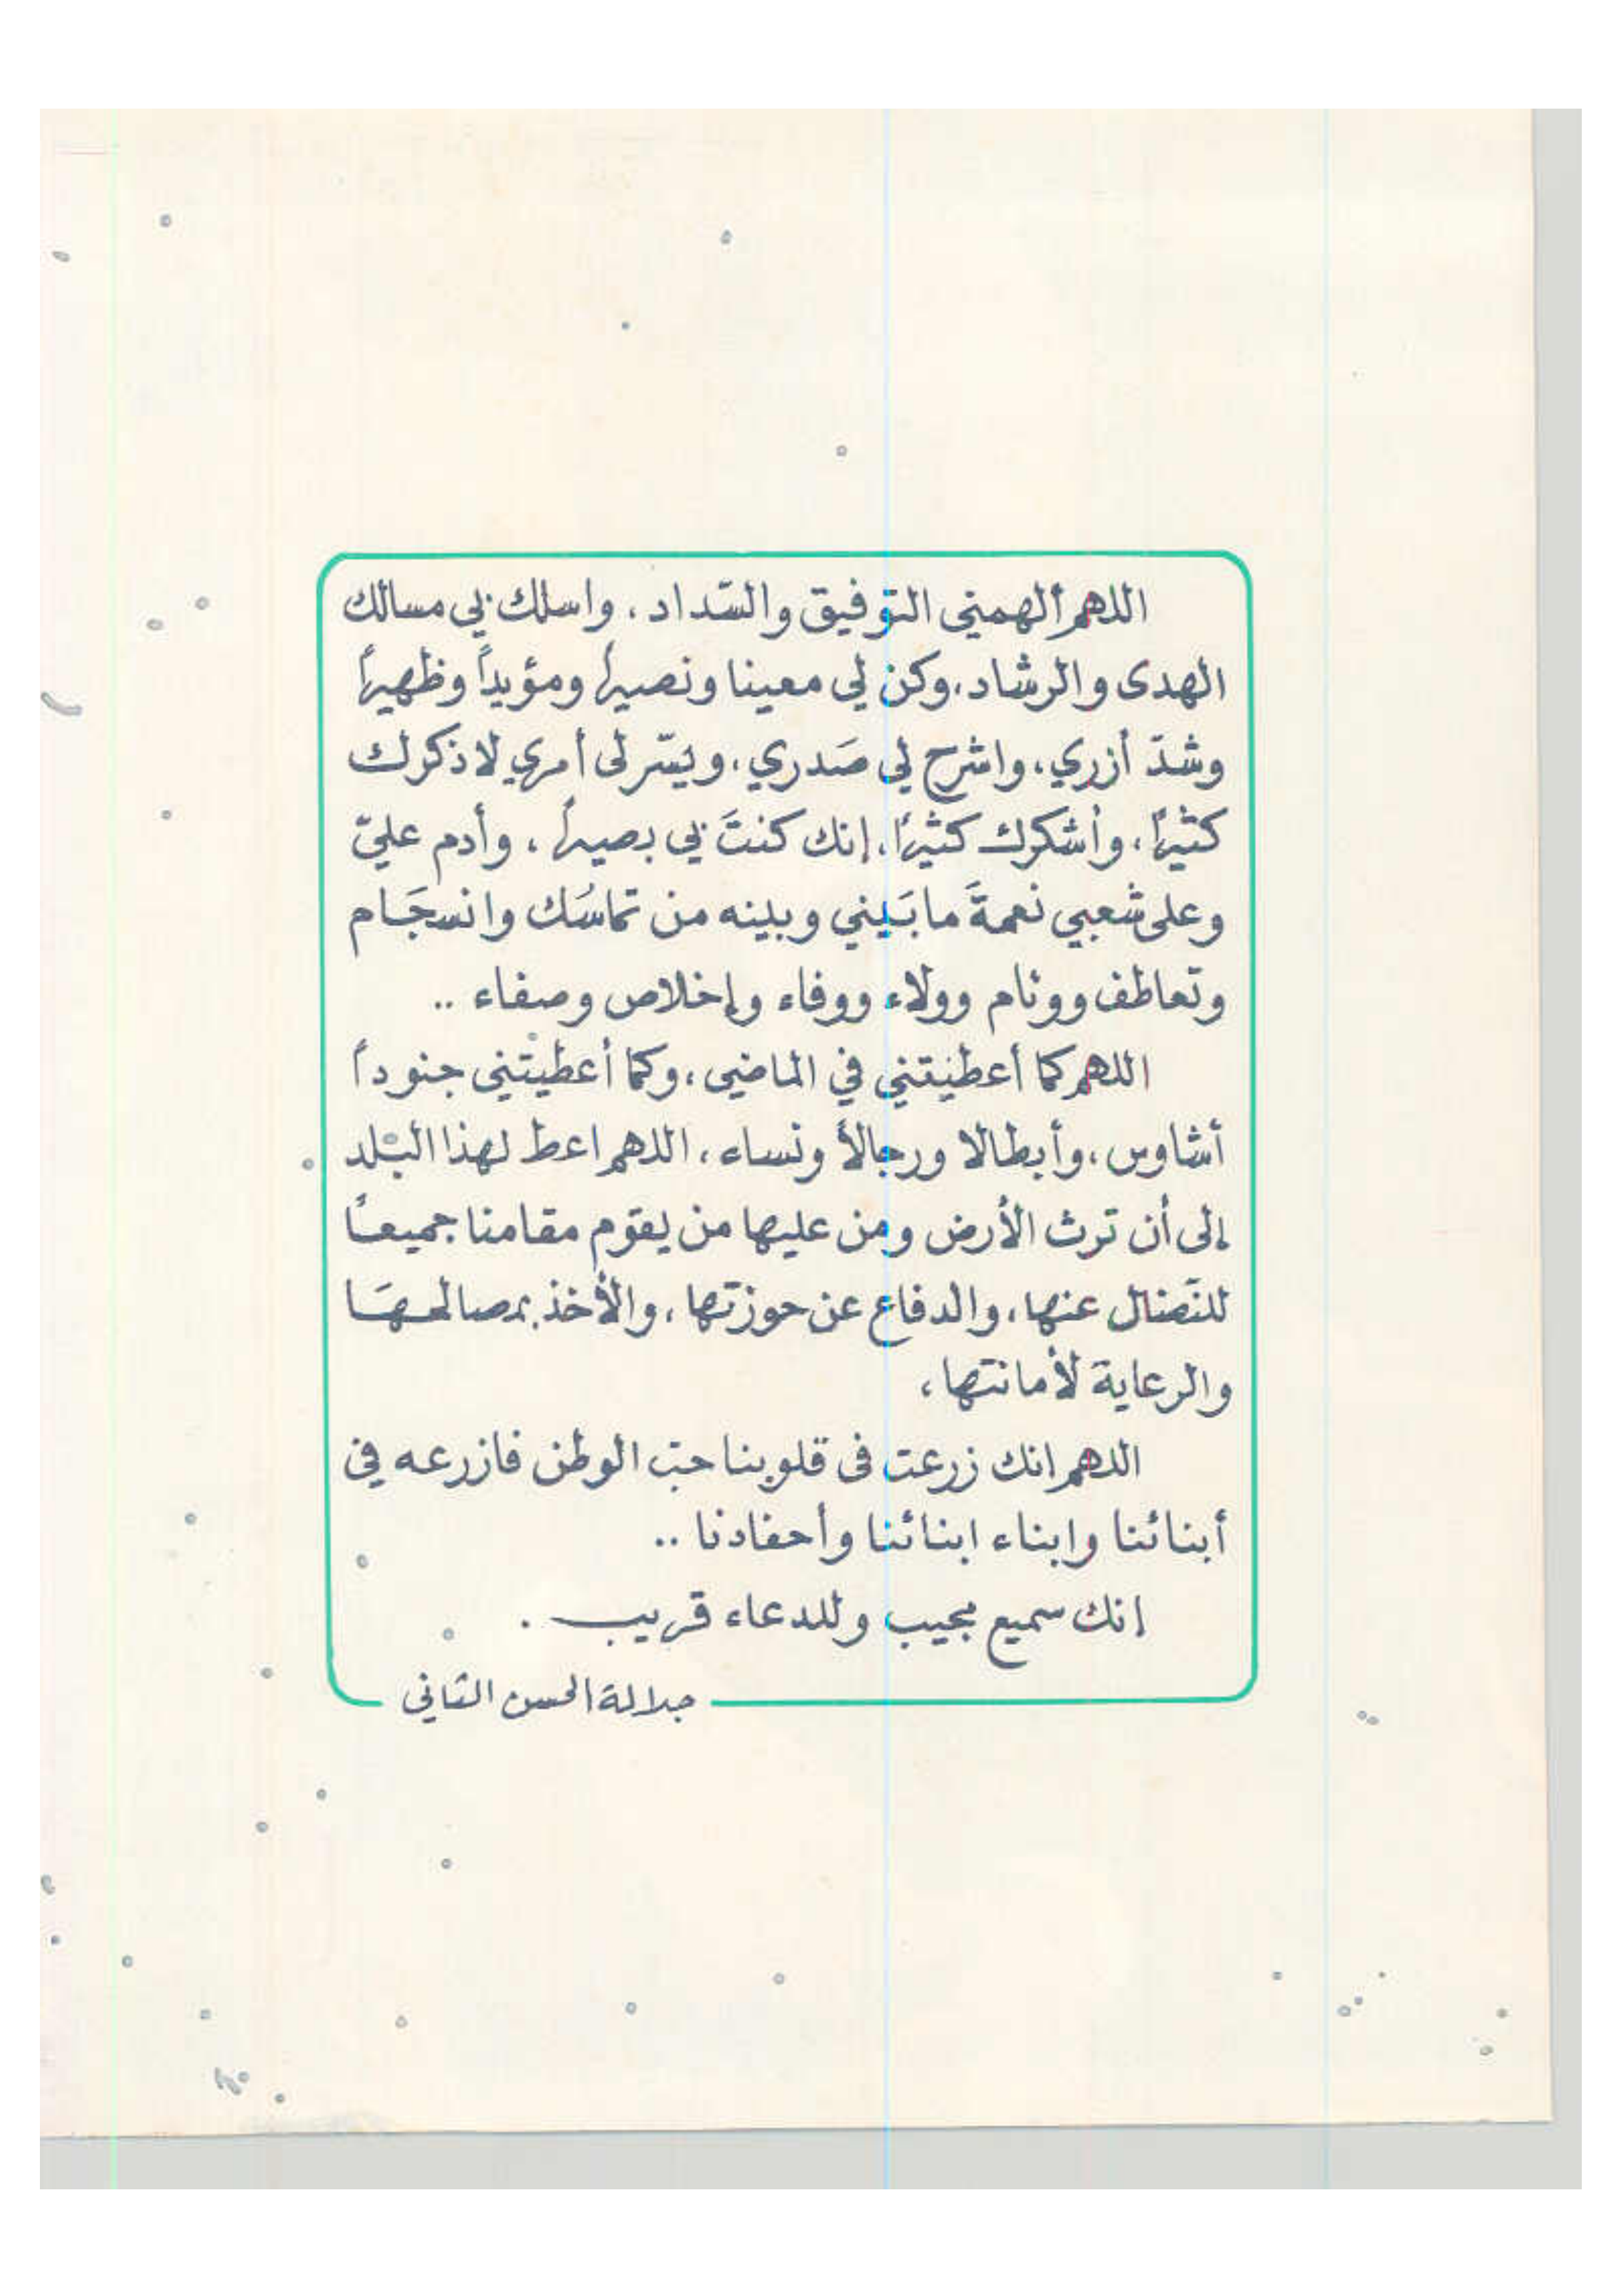 اللهم ألهمني التوفيق والسّداد، واسلك بي مسالك
الهدى والرشاد، وكن لي معينا ونصيراً ومؤيداً وظهيراً
وشدّ أزري، واشرح لي صَدري، ويسّر لي أمري لاذكرك
كثيراً، وأشكرك كثيرًا، إنك كنتَ بي بصيراً، وأدم عليّ
وعلى شعبي نعمةَ ما بَيني وبينه من تماسُك وانسجَام
وتعاطف ووئام وولاء ووفاء وإخلاص وصفاء ..
اللهم كما أعطيتني في الماضي، وكما أعطيتني جنوداً
أشاوس، وأبطالا ورجالاً ونساء، اللهم اعط لهذا البلد
إلى أن ترث الأرض ومن عليها من يقوم مقامنا جميعًا
للنّضال عنها، والدفاع عن حوزتها، والأخذ بمصالحهَا
والرعاية لأمانتها،
اللهم انك زرعت في قلوبنا حبّ الوطن فازرعه في
أبنائنا وابناء ابنائنا وأحفادنا ..
إنك سميع مجيب وللدعاء قريب .
جلالة الحسن الثاني